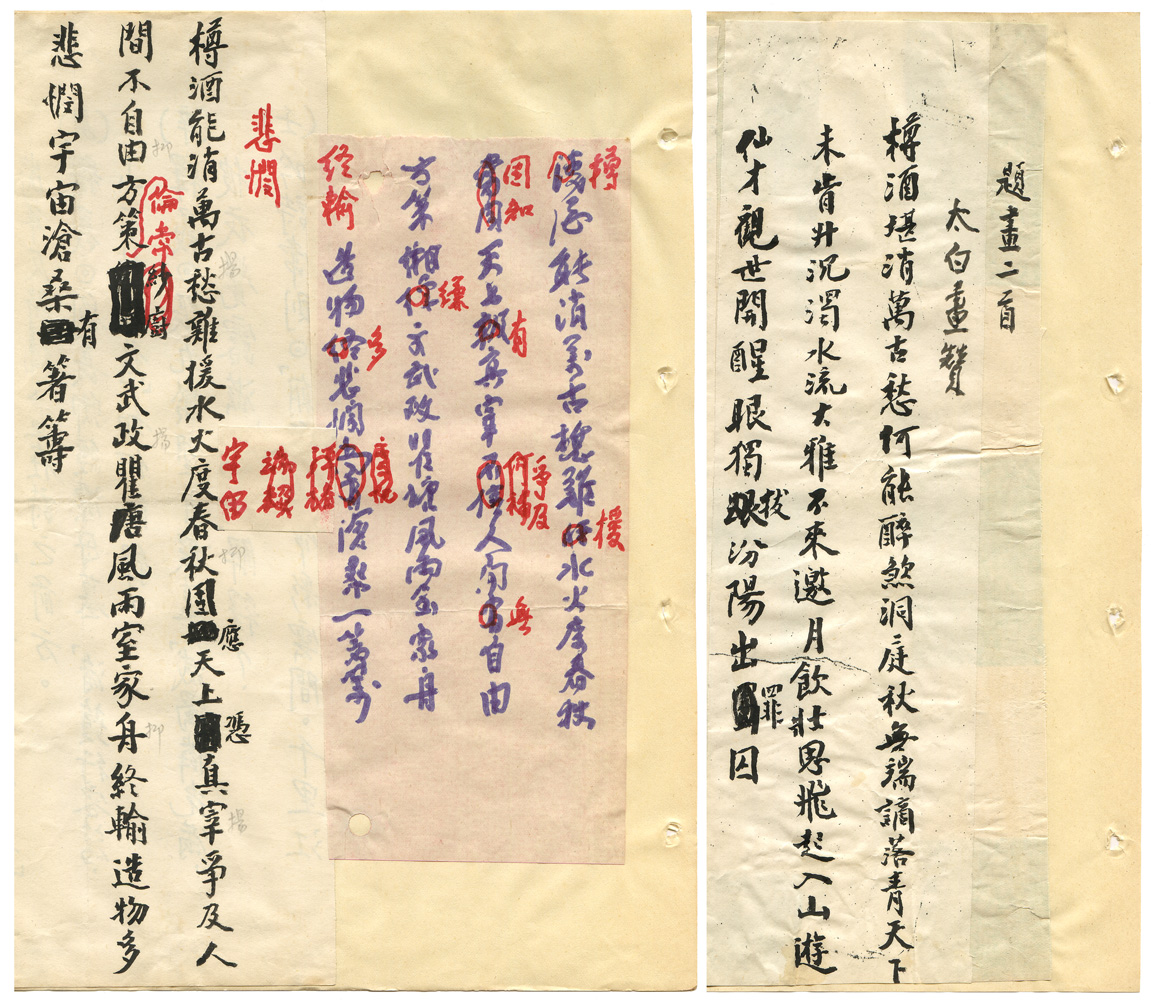 題畫二首
太白畫贊
樽酒堪消萬古愁何能醉煞洞庭秋無端謫落青天下
未肯升沉濁水流大雅不來邀月飲壯思飛起入山遊
仙才觀世開醒眼獨拔汾陽出罪囚
樽
酒能消萬古愁難水火度春秋
援
因知
天上真宰人間自由
有
爭及
何補
無
方策懶文武政瞿塘風雨室家舟
終輸
造物悲憫滄桑一籌
多
宇宙
悲憫
樽酒能消萬古愁難援水火度春秋固應天上憑真宰爭及人
間不自由方策倫常文武政瞿唐風雨室家舟終輸造物多
悲憫宇宙滄桑有箸籌
抑
揚
揚
抑
抑
揚